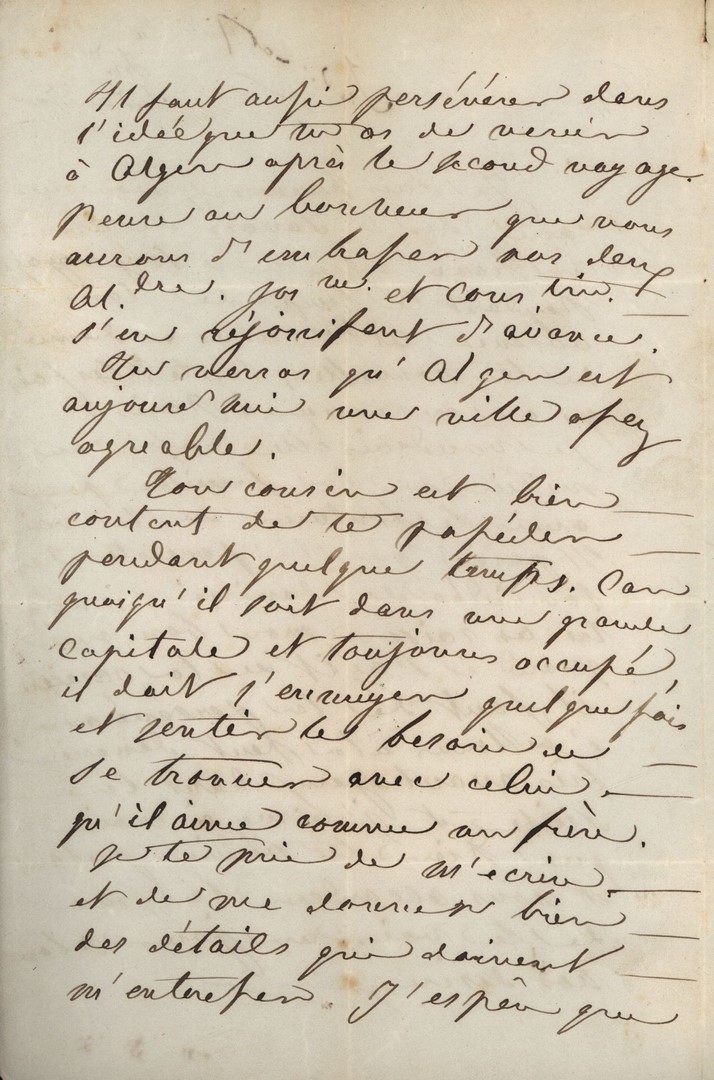 Il faut aussi persévérer dans
l'idée que tu as de venir
à Alger après le second voyage.
Pense au bonheur que nous
aurons d'embrasser nos deux
Al.dre. Jos ne. et Constin.
s'en réjouissent d'avance.
Tu verras qu'Alger est
aujourd'hui une ville assez
agreable.
Ton cousin est bien
content de te posséder
pendant quelque temps. Car
quoiqu'il soit dans une grande
capitale et toujours occupé,
il doit s'ennuyer quelque fois
et sentir le besoin de
se trouver avec celui
qu'il aime comme un frère.
Je te prie de m'ecrire
et de me donner bien
des détails qui doivent
m'interesser. J'espère que